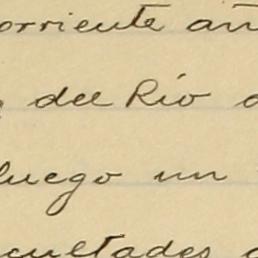 orriente añ
del Río
luego un
cultades